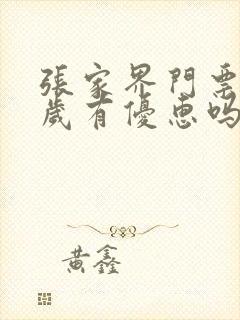 張家界門票
歲有優惠嗎
黄鑫